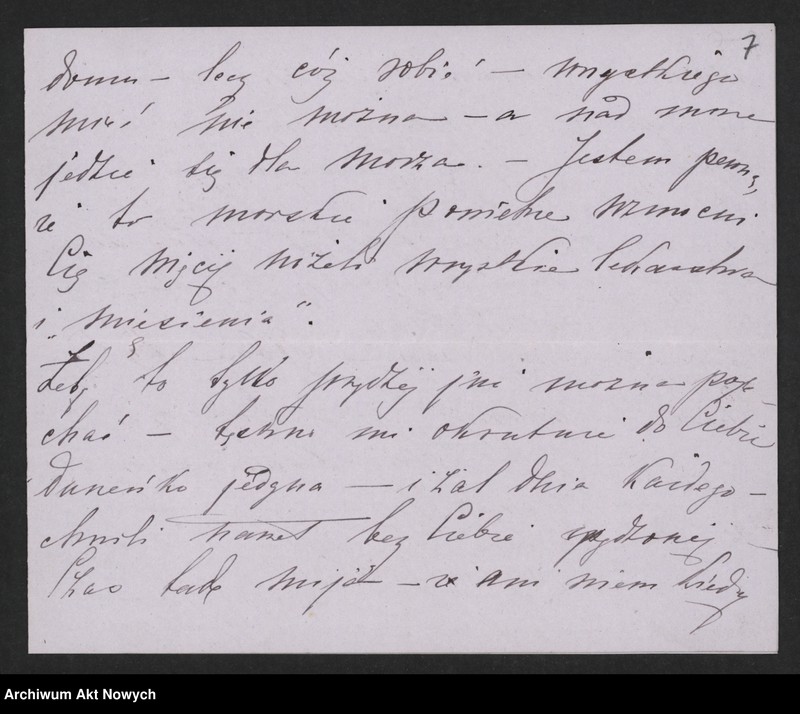 7
domu – lecz cóż robić – wszystkiego
mieć nie można – a nad morze
jedzie się dla morza. – Jestem pewną,
że to morskie powietrze wzmocni
Cię więcej niżeli wszystkie lekarstwa
i „miesienia".
Żeby to tylko prędzej już można poje-
chać – tęskno mi okrutnie do Ciebie
Duneńko jedyna – i żal dnia każdego –
chwili nawet bez Ciebie spędzonej –
Czas tak mija – że ani wiem kiedy
Archiwum Akt Nowych